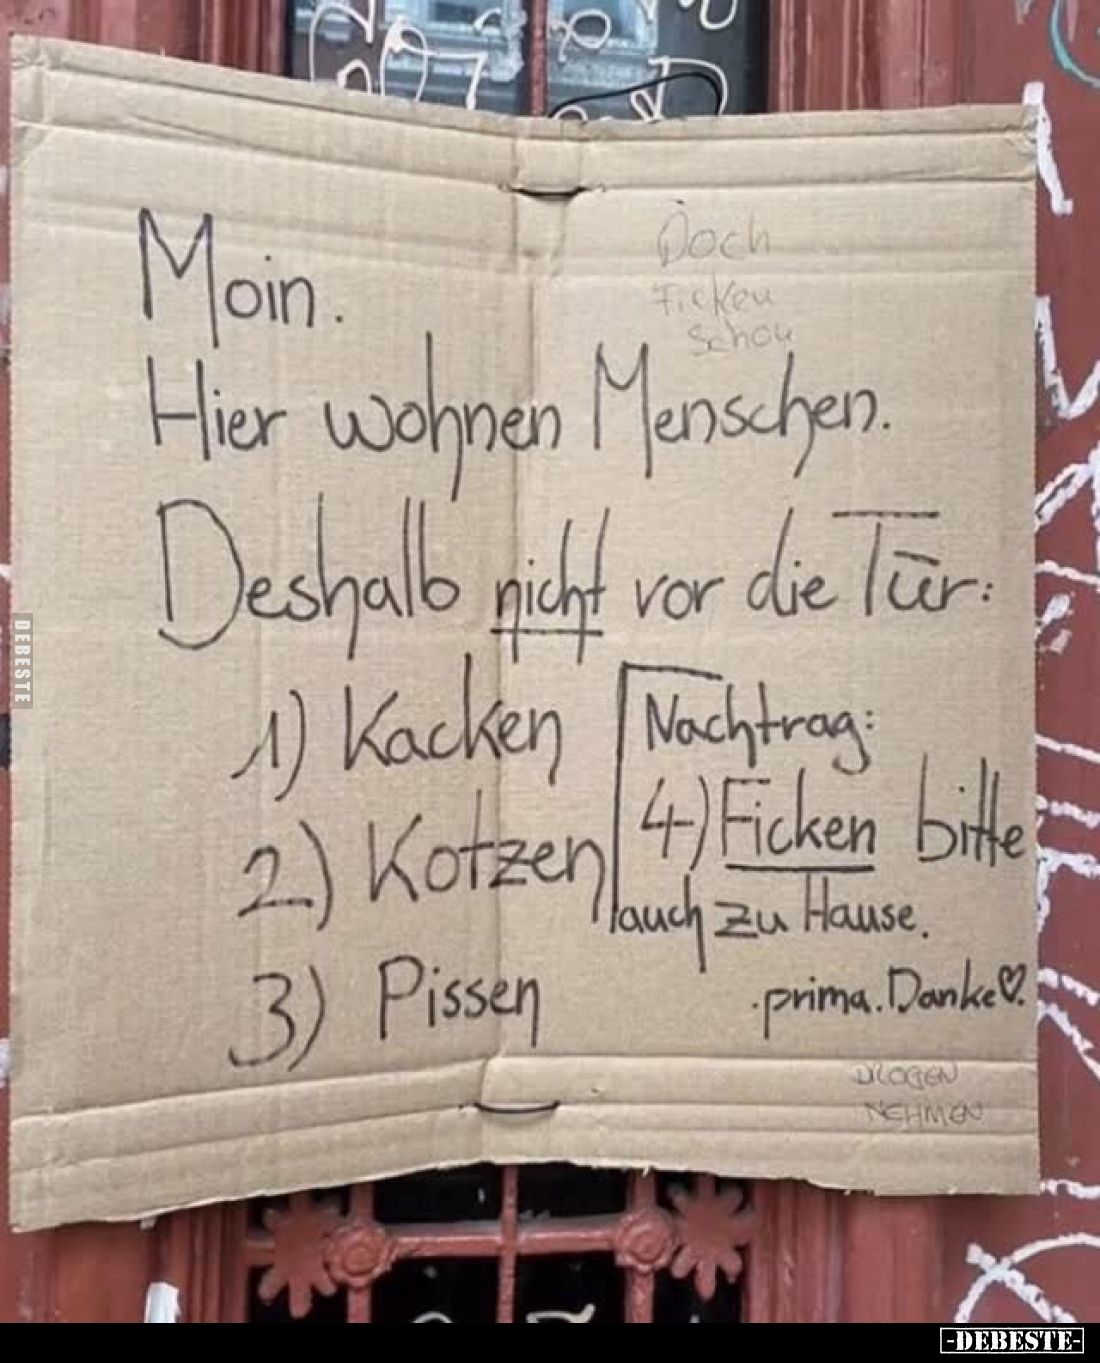 Moin.
Doch
Ficken
schon
Hier wohnen Menschen.
Deshalb nicht vor die Tür:
1) Kacken
2) Kotzen
3) Pissen
Nachtrag:
4) Ficken bitte
auch zu Hause.
.prima. Danke♡.
DROGEN
NEHMEN
DEBESTE
-DEBESTE-